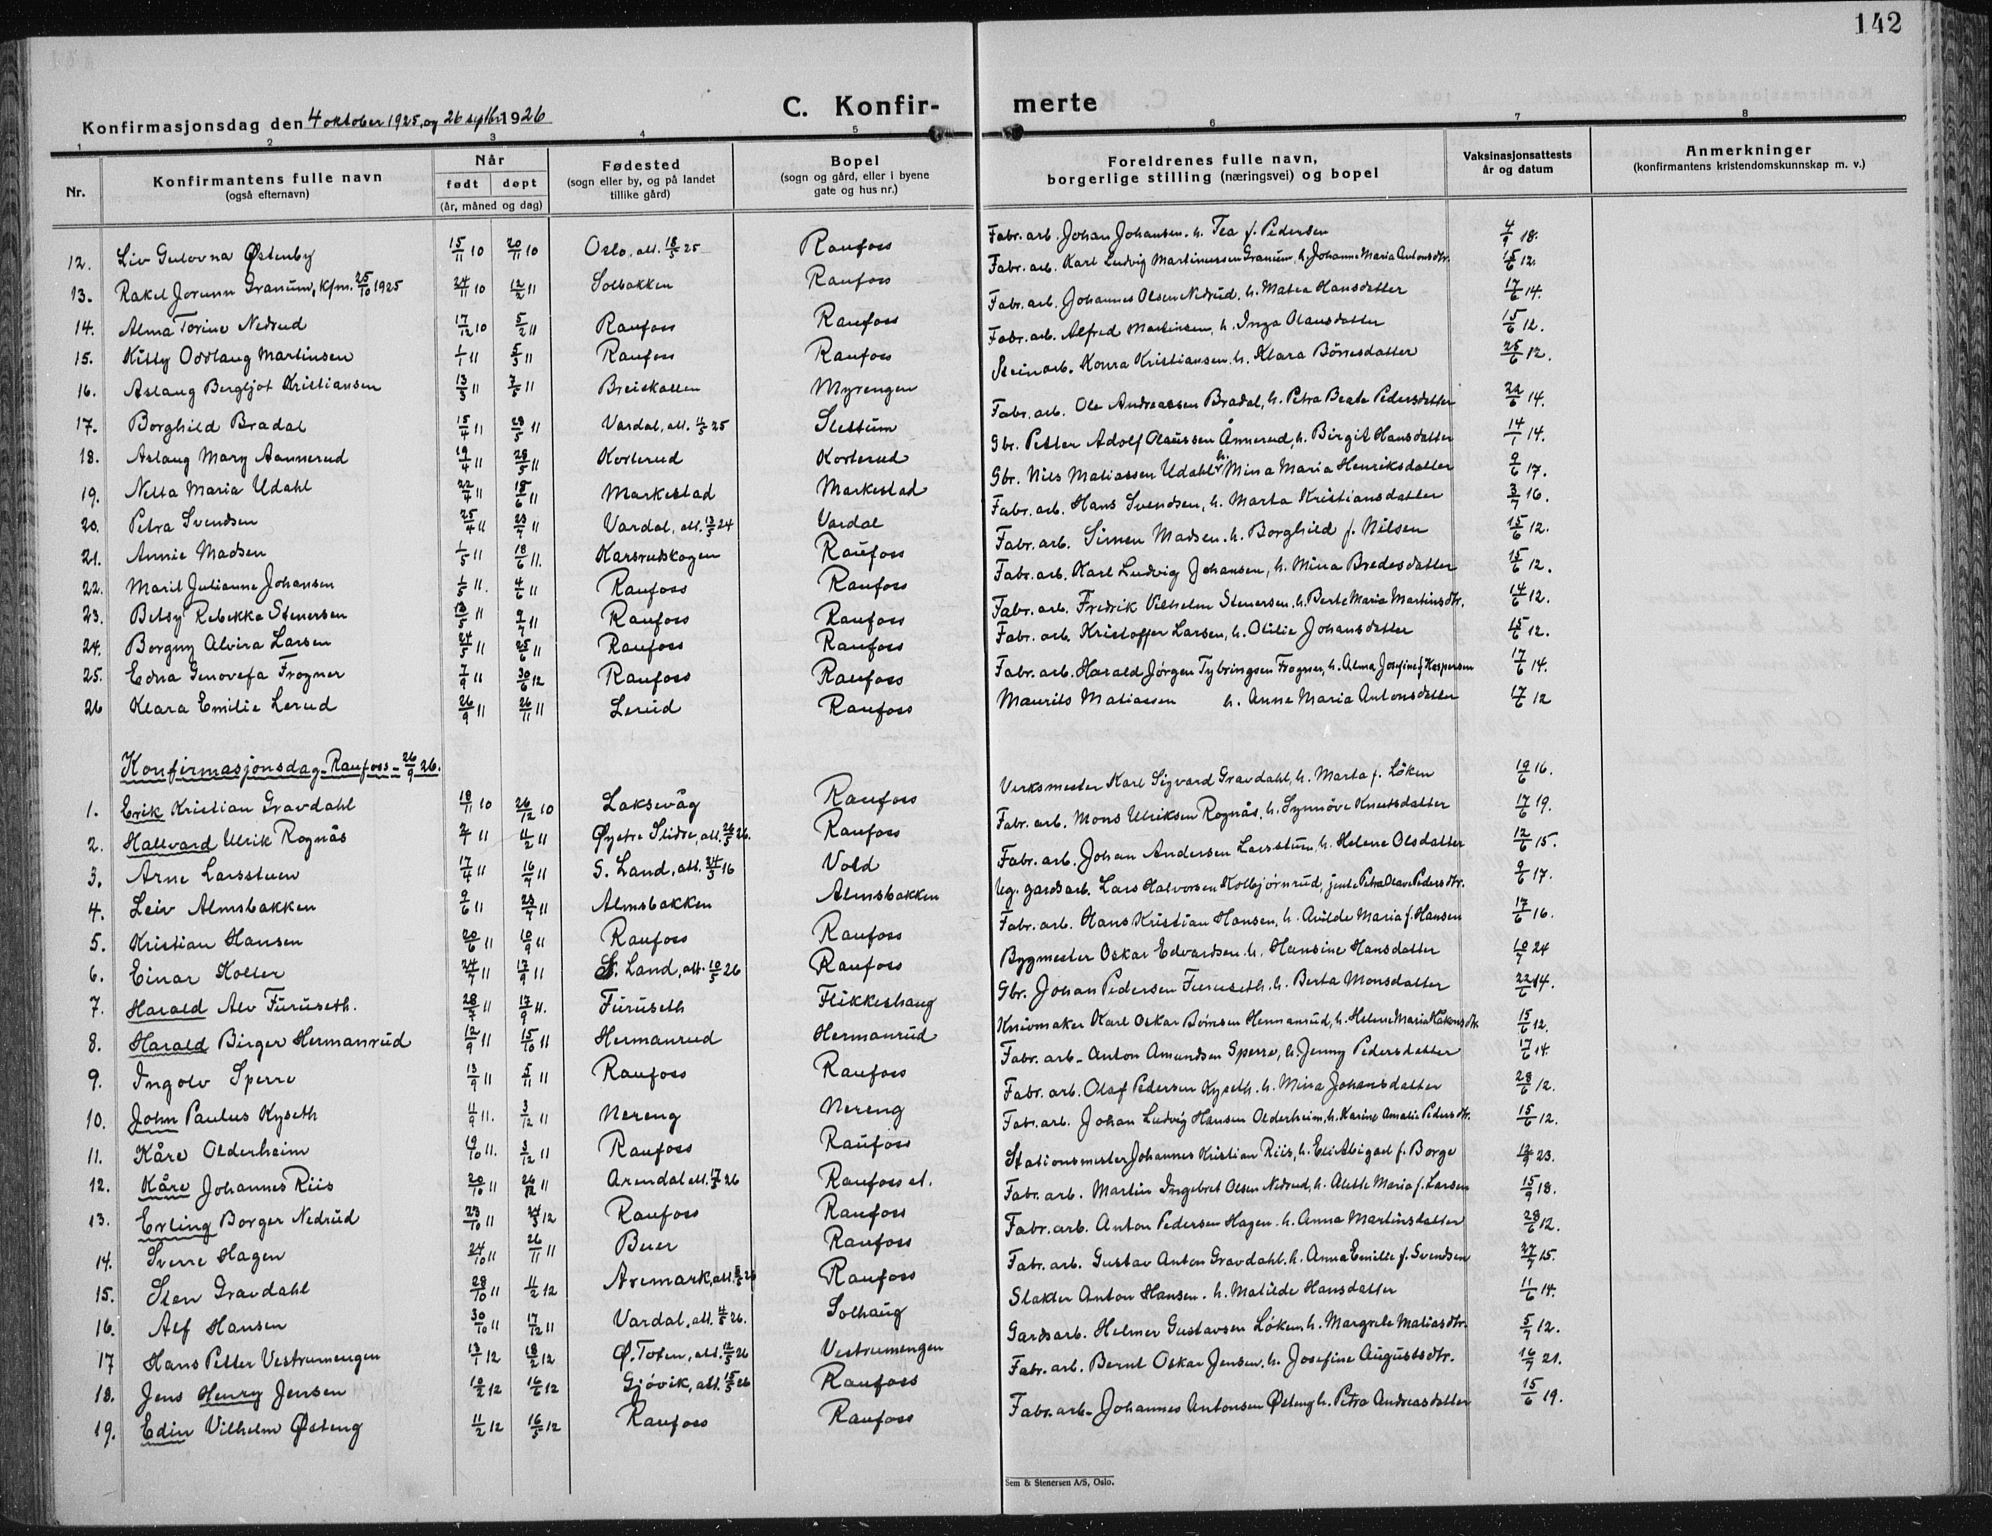 142
C. Konfir- merte
Konfirmasjonsdag den 4 oktober 1925, og 26 septbr 1926
1 2 3 4 5 6 7 8
Nr. Konfirmantens fulle navn (også efternavn) Når født døpt (år, måned og dag) Fødested (sogn eller by, og på landet tillike gård) Bopel (sogn og gård, eller i byene gate og hus nr.) Foreldrenes fulle navn, borgerlige stilling (næringsvei) og bopel Vaksinasjonsattests år og datum Anmerkninger (konfirmantens kristendomskunnskap m. v.)
12. Liv Gulovna Østenby 15/11 10 20/11 10 Oslo, att. 18/5 25 Raufoss Fabr. arb. Johan Johansen. h. Tea f. Pedersen 4/9 18.
13. Rakel Jorunn Granum, kfm. 25/10 1925 24/11 10 12/2 11 Solbakken Raufoss Fabr. arb. Karl Ludvig Martinussen Granum, h. Johanne Maria Antonsdtr. 15/6 12.
14. Alma Torine Nedrud 17/12 10 5/2 11 Raufoss Raufoss Fabr. arb. Johannes Olsen Nedrud, h. Matea Hansdatter 17/6 14.
15. Kitty Oddlaug Martinsen 1/1 11 5/3 11 Raufoss Raufoss Fabr. arb. Alfred Martinsen, h. Inga Olausdatter 15/6 12.
16. Aslaug Bergljot Kristiansen 13/3 11 7/5 11 Breiskallen Myrengen Steinarb. Konra Kristiansen. h. Klara Börresdatter 25/6 12.
17. Borghild Bradal 15/4 11 28/5 11 Vardal, att. 11/5 25 Slettum Fabr. arb. Ole Andreassen Bradal, h. Petra Beate Pedersdatter 22/6 14.
18. Aslaug Mary Aannerud 19/4 11 28/5 11 Korterud Korterud Gbr. Petter Adolf Olaussen Ånnerud, h. Birgit Hansdatter 14/1 14.
19. Nelta Maria Udahl 22/4 11 18/6 11 Markestad Markestad Gbr. Nils Matiassen Udahl h. Mina Maria Henriksdatter 9/6 17.
20. Petra Svendsen 25/4 11 23/7 11 Vardal, att. 13/5 24 Vardal Fabr. arb. Hans Svendsen, h. Marta Kristiansdatter 3/7 16.
21. Annie Madsen 1/5 11 18/6 11. Karsrudskogen Raufoss Fabr. arb. Simen Madsen. h. Borghild f. Nilsen 15/6 12.
22. Marit Julianne Johansen 1/5 11. 4/6 11 Raufoss Raufoss Fabr. arb. Karl Ludvig Johansen, h. Mina Bredesdatter 15/6 12.
23. Betsy Rebekka Stenersen 13/5 11 9/7 11 Raufoss Raufoss Fabr. arb. Fredrik Vilhelm Stenersen. h. Berte Maria Martinsdtr. 14/6 12.
24. Borgny Alvira Larsen 24/5 11 25/6 11 Raufoss Raufoss Fabr. arb. Kristoffer Larsen, h. Otilie Johansdatter 15/6 12.
25. Edna Genovefa Frogner 7/9 11 30/6 12 Raufoss Raufoss Fabr. arb. Harald Jørgen Tybringsen Frogner, h. Alma Josefine f. Kaspersen 17/6 14.
26 Klara Emilie Lerud 26/9 11 26/11 11 Lerud Raufoss Maurits Matiassen h. Anne Maria Antonsdatter 17/6 12
Konfirmasjonsdag - Raufoss - 26/9 26.
1. Erik Kristian Gravdahl 18/11 10 26/12 10 Laksevåg Raufoss Verksmester Karl Sigvard Gravdahl, h. Marta f. Löken 19/6 16.
2. Hallvard Ulrik Rognås 11 11/2 11 Øystre Slidre, att. 26/5 26. Raufoss Fabr. arb. Mons Ulriksen Rognås, h. Synnöve Knutsdatter 17/6 19.
3. Arne Larsstuen 17/4 11 16/7 11 S. Land, att. 24/5 16 Vold Fabr. arb. Johan Andersen Larsstuen, h. Helene Olsdatter 12/6 15.
4. Leiv Almsbakken 9/6 11 23/7 11 Almsbakken Almsbakken Ug. gardsarb. Lars Halvorsen Kolbjørnrud, jente Petra Olave Pedersdtr. 9/6 17.
5. Kristian Hansen 20/6 11 10/9 11 Raufoss Raufoss Fabr. arb. Hans Kristian Hansen, h. Avilde Maria f. Hansen 17/6 16.
6. Einar Kolter 24/7 11 17/9 11 S. Land, att. 10/5 26 Raufoss Bygmester Oskar Edvardsen. h. Hansine Hansdatter 10/7 24
7. Harald Alv Furuseth. 28/7 11 17/9 11. Furuseth Flikkeshaug Gbr. Johan Pedersen Furuseth. h. Berta Monsdatter 22/6 14.
8. Harald Birger Hermanrud 12/9 11 15/10 11 Hermanrud Hermanrud Knivmaker Karl Oskar Børresen Hermanrud, h. Helene Maria Håkonsdtr. 15/6 12.
9. Ingolv Sperre 13/9 11 5/11 11 Raufoss Raufoss Fabr. arb. Anton Amundsen Sperre, h. Jenny Pedersdatter 17/6 14.
10. John Paulus Kyseth 11/9 11. 3/12 11 Nereng Nereng Fabr. arb. Olaf Pedersen Kyseth. h. Mina Johansdatter 28/6 12.
11. Kåre Olderheim 19/10 11. 3/12 11 Raufoss Raufoss Fabr. arb. Johan Ludvig Hansen Olderheim, h. Karine Amalie Pedersdtr. 15/6 12.
12. Kåre Johannes Riis 20/10 11 26/12 11 Arendal att. 17/5 26 Raufoss st. Stationsmester Johannes Kristian Riis, h. Eli Abigael f. Borge 23.
13. Erling Borger Nedrud 23/10 11 24/3 12 Raufoss Raufoss Fabr. arb. Martin Ingebret Olsen Nedrud, h. Alette Maria f. Larsen 15/9 18.
14. Sverre Hagen 24/10 11 26/11 11 Buer Raufoss Fabr. arb. Anton Pedersen Hagen. h. Anna Martinsdatter 28/6 12.
15. Sten Gravdahl 28/10 11 11/2 12 Aremark, att. 26 Raufoss Fabr. arb. Gustav Anton Gravdahl. h. Anna Emilie f. Svendsen 27/7 15.
16. Alf Hansen 30/10 11 17/12 11 Vardal, att. 4/5 26. Solhaug Slakter Anton Hansen. h. Matilde Hansdatter 11/6 14.
17 Hans Petter Vestrumengen 13/1 12 18/2 12 Ø. Toten, att. 12/5 26 Vestrumengen Gardsarb. Helmer Gustavsen Løken, h. Margrete Matiasdtr. 5/7 12.
18. Jens Henry Jensen 10/2 12 16/6 12 Gjövik, att. 15/5 26 Raufoss Fabr. arb. Bernt Oskar Jensen, h. Josefine Augustsdtr. 16/7 21.
19. Edin Vilhelm Østeng 11/2 12 16/5 12 Raufoss Raufoss Fabr. arb. Johannes Antonsen Østeng h. Petra Andreasdatter 15/6 19.
Sem & Stenersen A/S, Oslo.